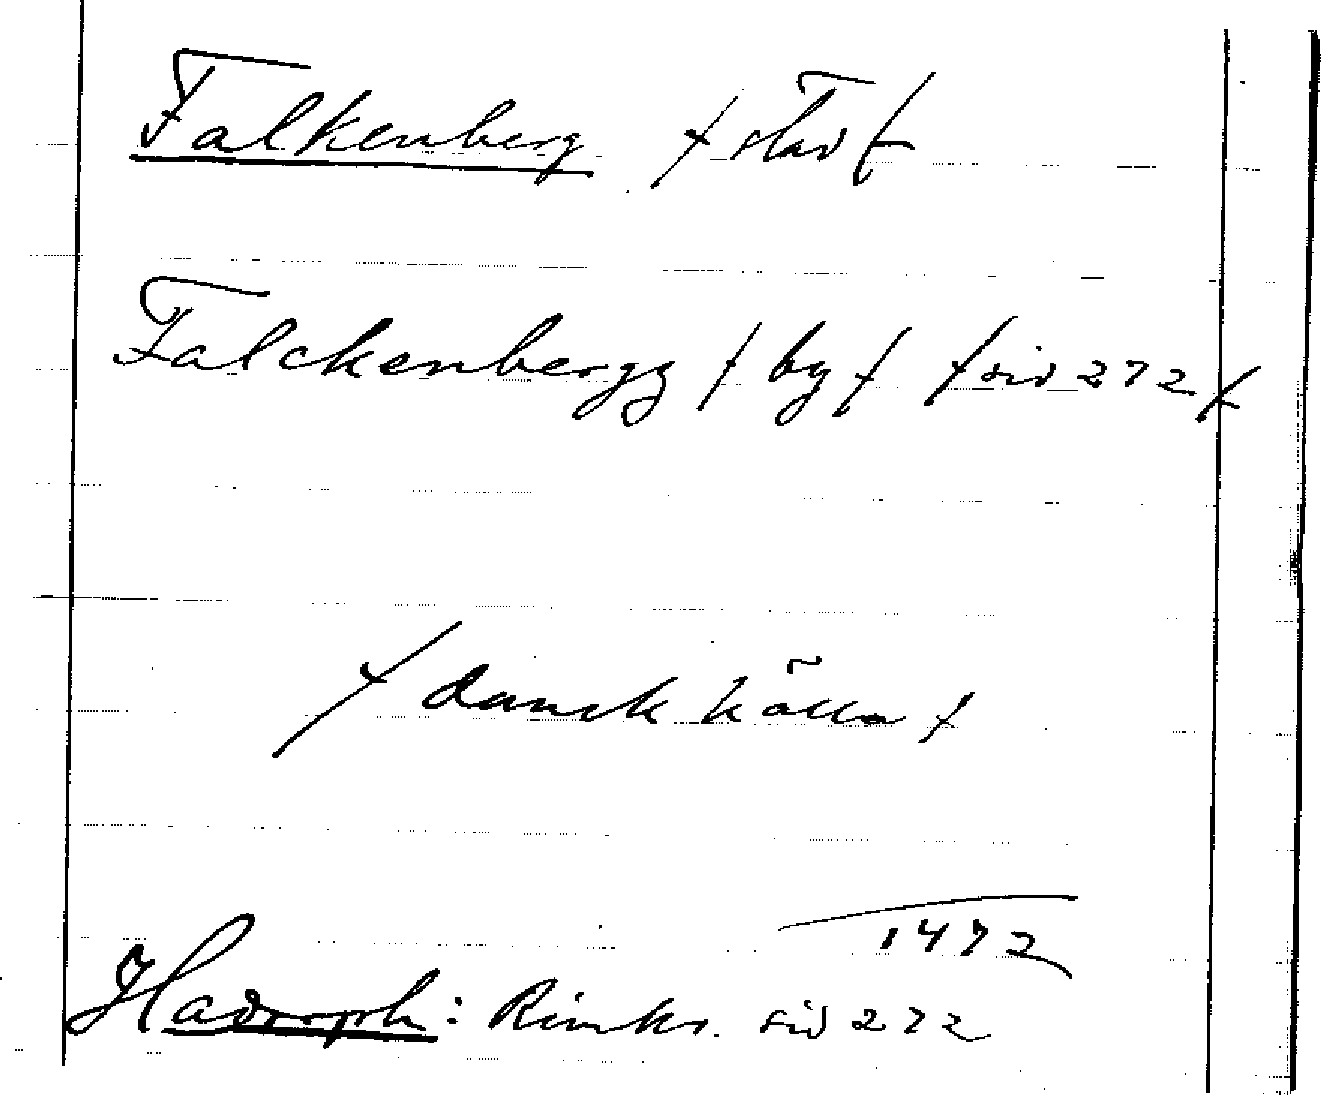 Falkenberg / stad /
Falckenbergg / by / / sid 272 /
/ dansk källa /
1472
Hadorph: Rimkr. sid 272